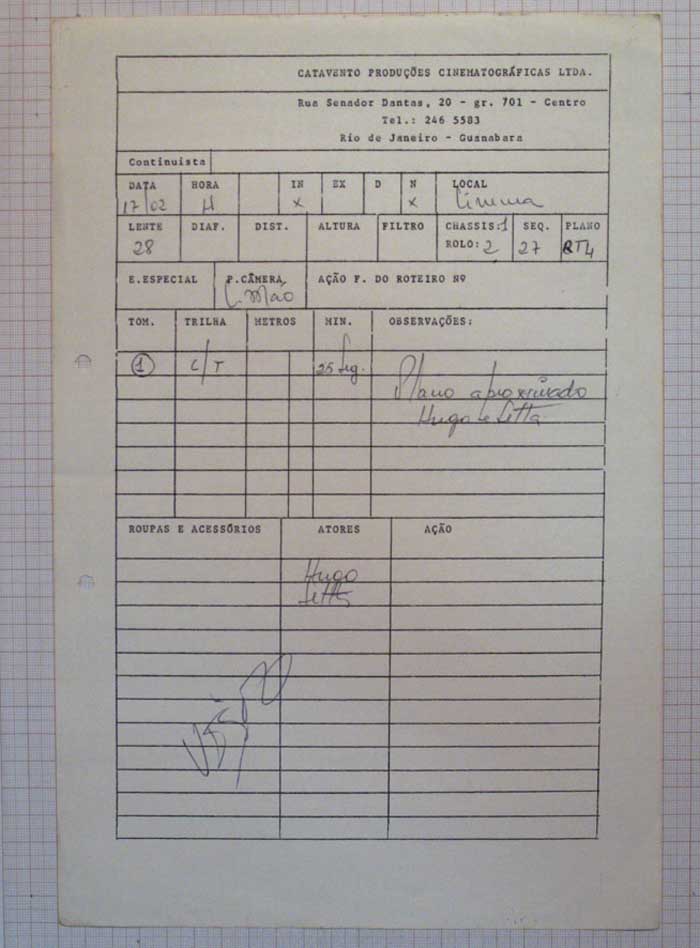 CATAVENTO PRODUÇÕES CINEMATOGRÁFICAS LTDA.
Rua Senador Dantas, 20 - gr. 701 - Centro
Tel.: 246 5583
Rio de Janeiro - Guanabara
Continuista
DATA HORA IN EX D N LOCAL
17/02 x x Cinema
LENTE DIAF. DIST. ALTURA FILTRO CHASSIS:1 SEQ. PLANO
28 ROLO: 2 27 RT4
E.ESPECIAL P.CÂMERA AÇÃO F. DO ROTEIRO Nº
C. Mão
TOM. TRILHA METROS MIN. OBSERVAÇÕES:
1 C/T 25 seg. Plano aproximado
Hugo e Setta
ROUPAS E ACESSÓRIOS ATORES AÇÃO
Hugo
Setta